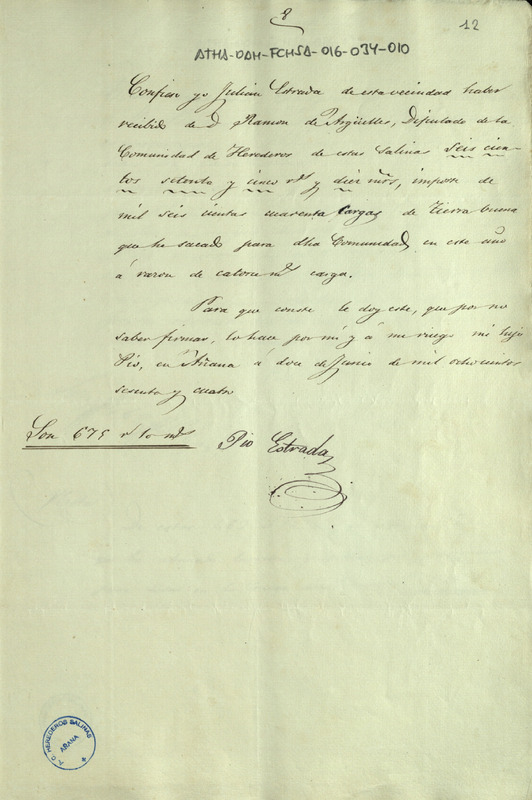 8
12
ATHA-DAH-FCHSA-016-034-010
Confieso yo Julian Estrada de esta vecindad haber
recibido de D. Ramon de Argüelles, Diputado de la
Comunidad de Herederos de estas Salinas seis cien-
tos setenta y cinco rs. y diez mrs, importe de
mil seis cientas cuarenta cargas de tierra buena
que he sacado para dha Comunidad en este año
á razon de catorce mrs carga.
Para que conste le doy este, que por no
saber firmar, lo hace por mi y á mi ruego mi hijo
Pio, en Añana á doce de Junio de mil ochocientos
sesenta y cuatro
Son 675 rs 10 ms
Pio Estrada
T. C. HEREDEROS SALINAS
AÑANA